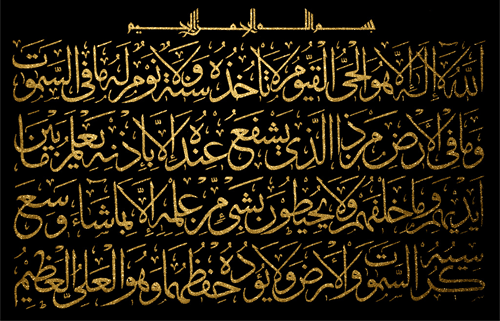 بسم الله الرحمن الرحيم
الله لا إله إلا هو الحي القيوم لا تأخذه سنة ولا نوم له ما في السموت
وما في الأرض من ذا الذي يشفع عنده إلا بإذنه يعلم ما بين
أيديهم وما خلفهم ولا يحيطون بشيء من علمه إلا بما شاء وسع
كرسيه السموت والأرض ولا يؤده حفظهما وهو العلي العظيم